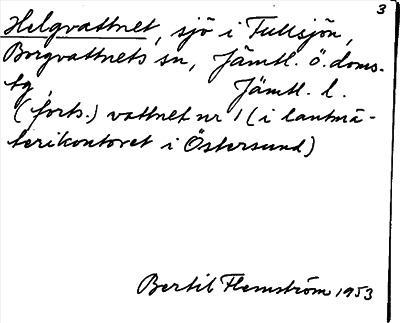 3
Helgvattnet, sjö i Fullsjön,
Borgvattnets sn, Jämtl. ö. doms-
tg, Jämtl. l.
(forts.) vattnet nr 1 (i lantmä-
terikontoret i Östersund)
Bertil Flemström 1953